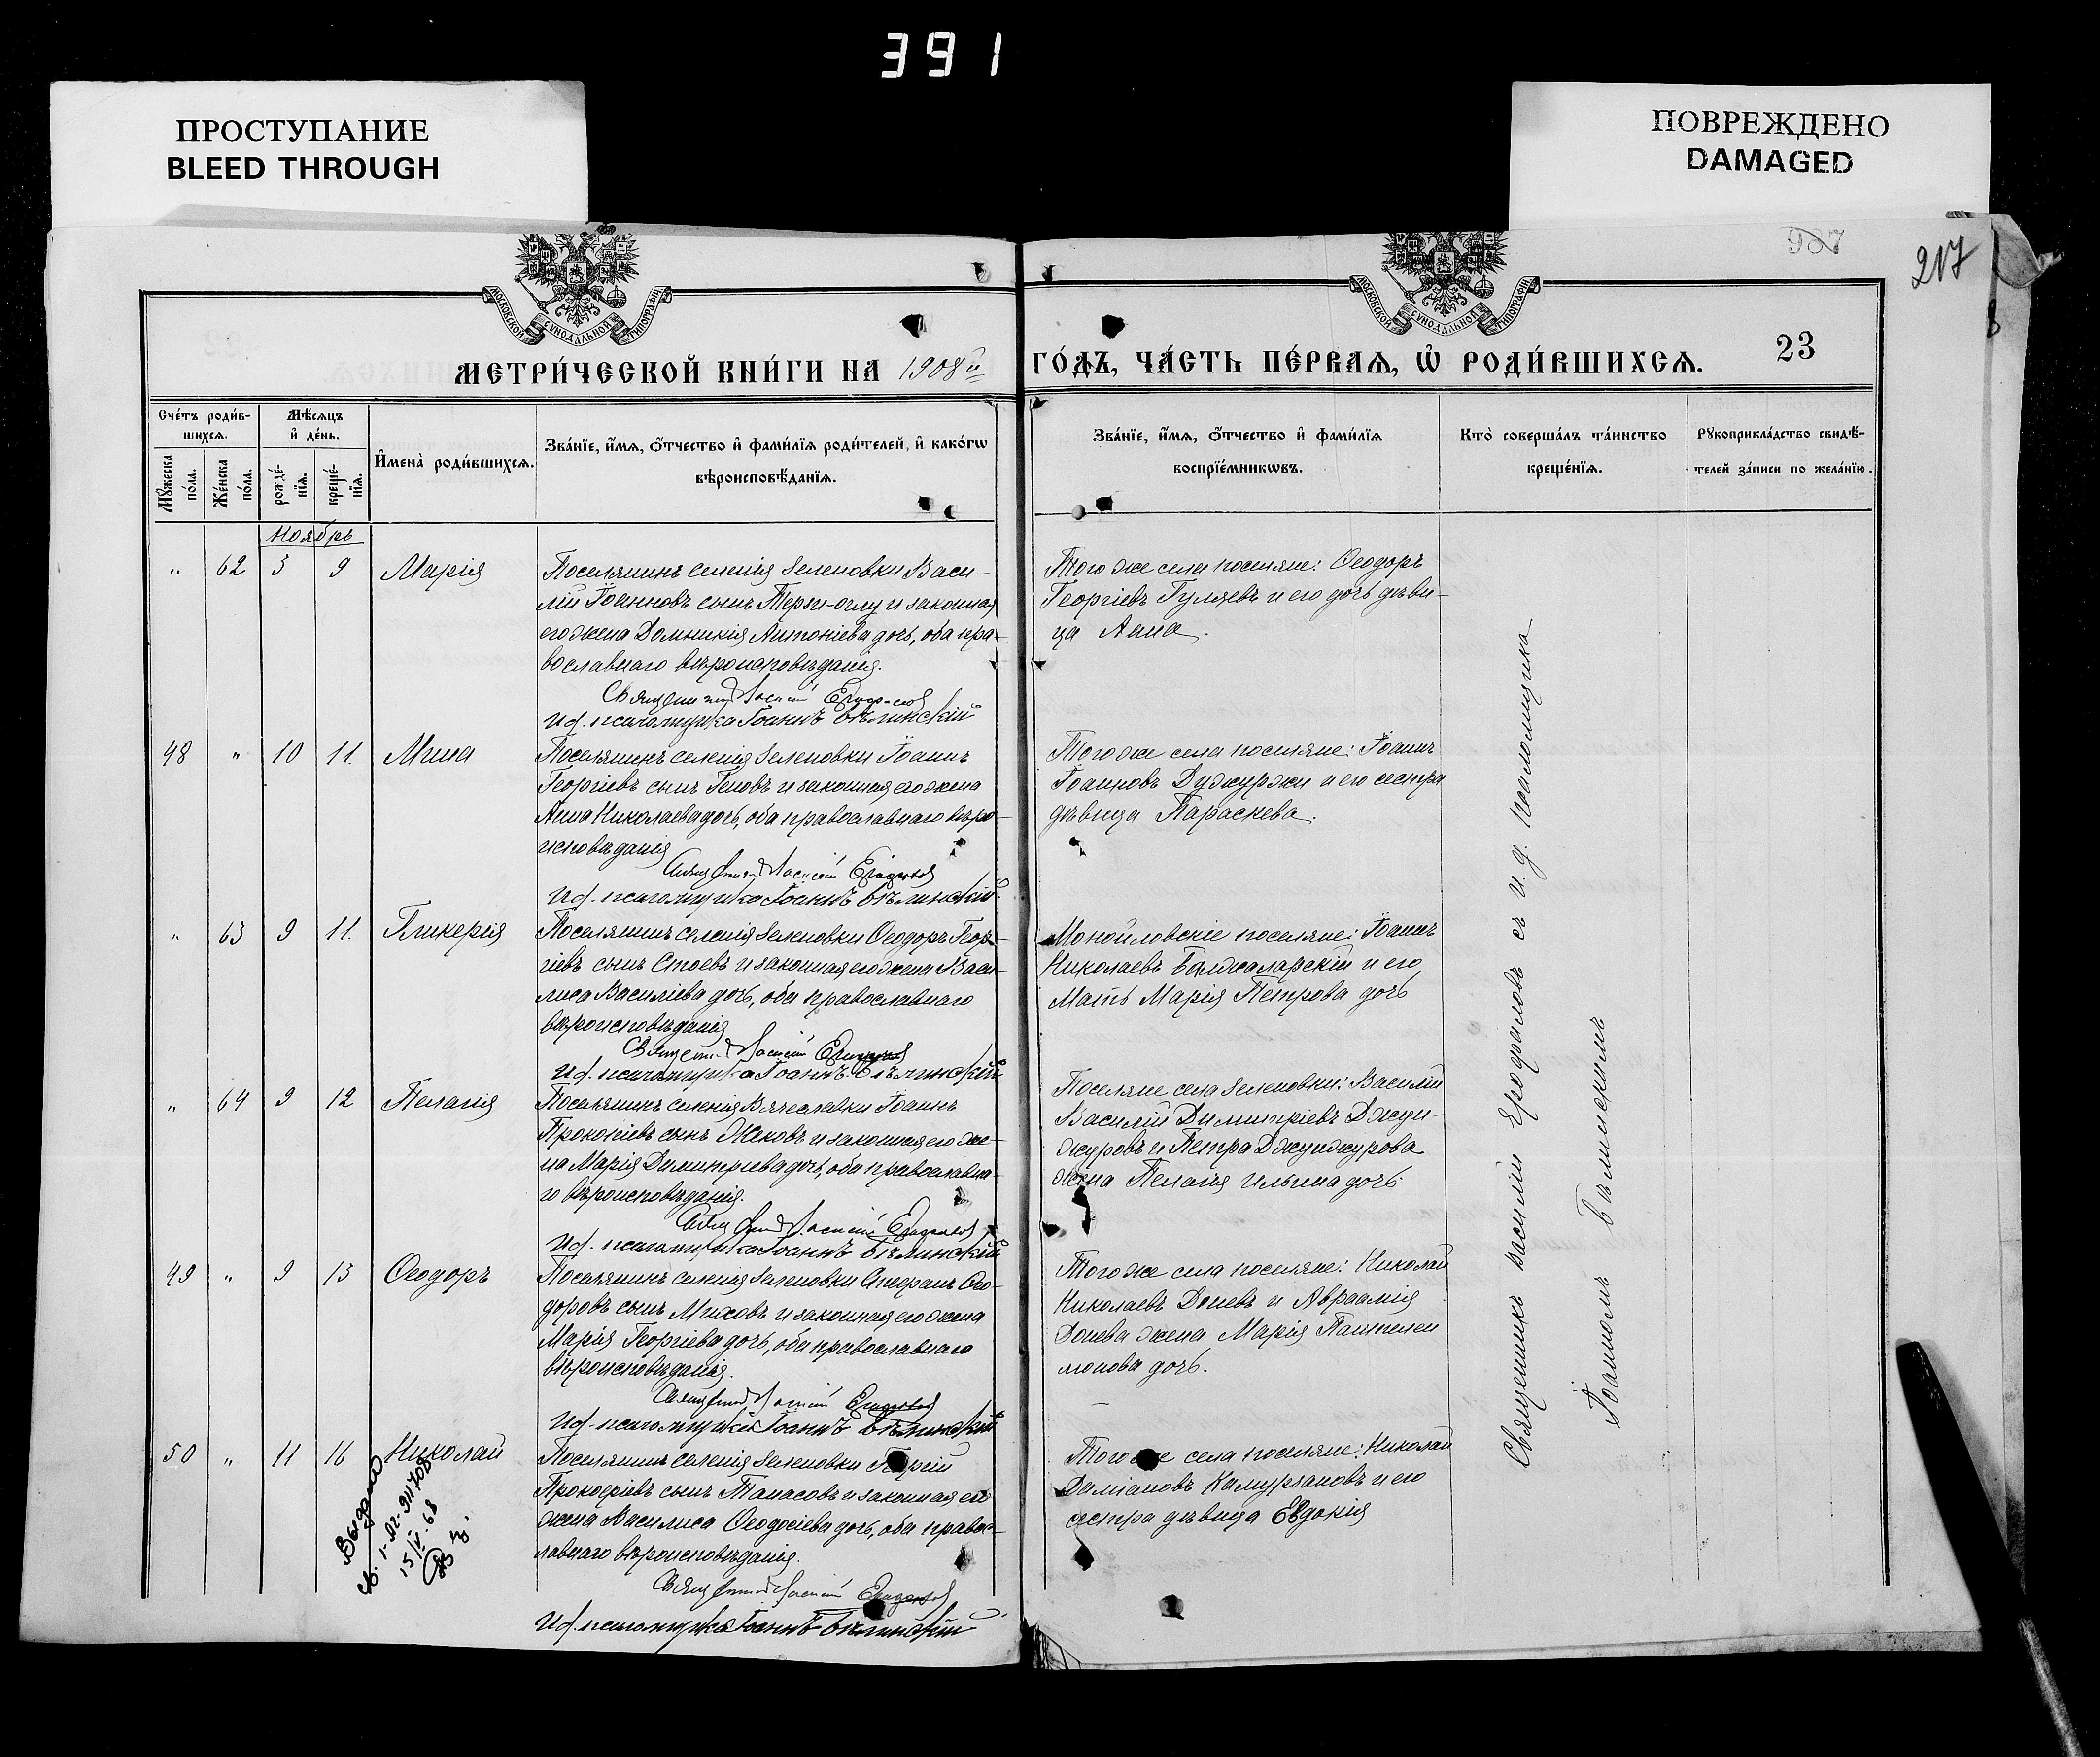 391
ПРОСТУПАНИЕ
BLEED THROUGH
ПОВРЕЖДЕНО
DAMAGED
987
217
МОСКОВСКОЙ СѴНОДАЛЬНОЙ ТИПОГРАФІИ
МОСКОВСКОЙ СѴНОДАЛЬНОЙ ТИПОГРАФІИ
МЕТРИ́ЧЕСКОЙ КНИ́ГИ НА 1908й ГО́ДЪ, ЧА́СТЬ ПЕ́РВАѦ, Ѡ҆ РОДИ́ВШИХСѦ.
23
Сче́тъ роди́в-
шихсѧ.
Мꙋ́жеска по́ла.
Же́нска по́ла.
Мѣ́сѧцъ
и҆ де́нь.
рожде́-
нїѧ.
креще́-
нїѧ.
И҆мена̀ роди́вшихсѧ.
Зва́нїе, и҆́мѧ, ѻ҆́тчество и҆ фами́лїѧ роди́телей, и҆ како́гѡ
вѣроисповѣ́данїѧ.
Зва́нїе, и҆́мѧ, ѻ҆́тчество и҆ фами́лїѧ
воспрїе́мникѡвъ.
Кто̀ соверша́лъ та́инство
креще́нїѧ.
Рꙋкоприкла́дство свидѣ́-
телей за́писи по жела́нїю.
Ноябрь
" 62 3 9 Марія
Поселянинъ селенія Зеленовки Васи-
лій Іоанновъ сынъ Терзи-оглу и законная
его жена Домникія Антоніева дочь, оба пра-
вославнаго вѣроисповѣданія.
Священникъ Василій
И.д. псаломщика Іоаннъ Бѣлинскій
Того же села поселяне: Ѳеодоръ
Георгіевъ Гуляевъ и его дочь дѣви-
ца Анна.
48 " 10 11. Мина
Поселянинъ селенія Зеленовки Іоаннъ
Георгіевъ сынъ Геновъ и законная его жена
Анна Николаева дочь, оба православнаго вѣро-
исповѣданія
Священникъ Василій
И.д. псаломщика Іоаннъ Бѣлинскій
Того же села поселяне: Іоаннъ
Іоанновъ и его сестра
дѣвица Параскева.
" 63 9 11. Гликерія
Поселянинъ селенія Зеленовки Ѳеодоръ Геор-
гіевъ сынъ Стоевъ и законная его жена Васи-
лиса Василіева дочь, оба православнаго
вѣроисповѣданія
Священникъ Василій
И.д. псаломщика Іоаннъ Бѣлинскій
поселяне: Іоаннъ
Николаевъ и его
мать Марія Петрова дочь
" 64 9 12 Пелагія
Поселянинъ селенія Вячеславки Іоаннъ
Прокопіевъ сынъ Жековъ и законная его же-
на Марія Димитріева дочь, оба православна-
го вѣроисповѣданія.
Священникъ Василій
И.д. псаломщика Іоаннъ Бѣлинскій
Поселяне села Зеленовки: Василій
Василій Димитріевъ Джун-
журовъ и Петра Джунжурова
жена Пелагія Ильина дочь.
49 " 9 13 Ѳеодоръ
Поселянинъ селенія Зеленовки Стефанъ Ѳео-
доровъ сынъ Миховъ и законная его жена
Марія Георгіева дочь, оба православнаго
вѣроисповѣданія.
Священникъ Василій
И.д. псаломщика Іоаннъ Бѣлинскій
Того же села поселяне: Николай
Николаевъ Доневъ и Авраамія
Донева жена Марія Пантелеи
монова дочь.
50 " 11 16 Николай
Поселянинъ селенія Зеленовки Георгій
Прокофіевъ сынъ Танасовъ и законная его
жена Василиса Ѳеодосіева дочь, оба правос-
лавнаго вѣроисповѣданія.
Священникъ Василій
И.д. псаломщика Іоаннъ Бѣлинскій
Того же села поселяне: Николай
Даміановъ и его
сестра дѣвица Евдокія
Выдано
15/V-68
Священникъ Василій съ и. д. псаломщика
Іоанномъ Бѣлинскимъ